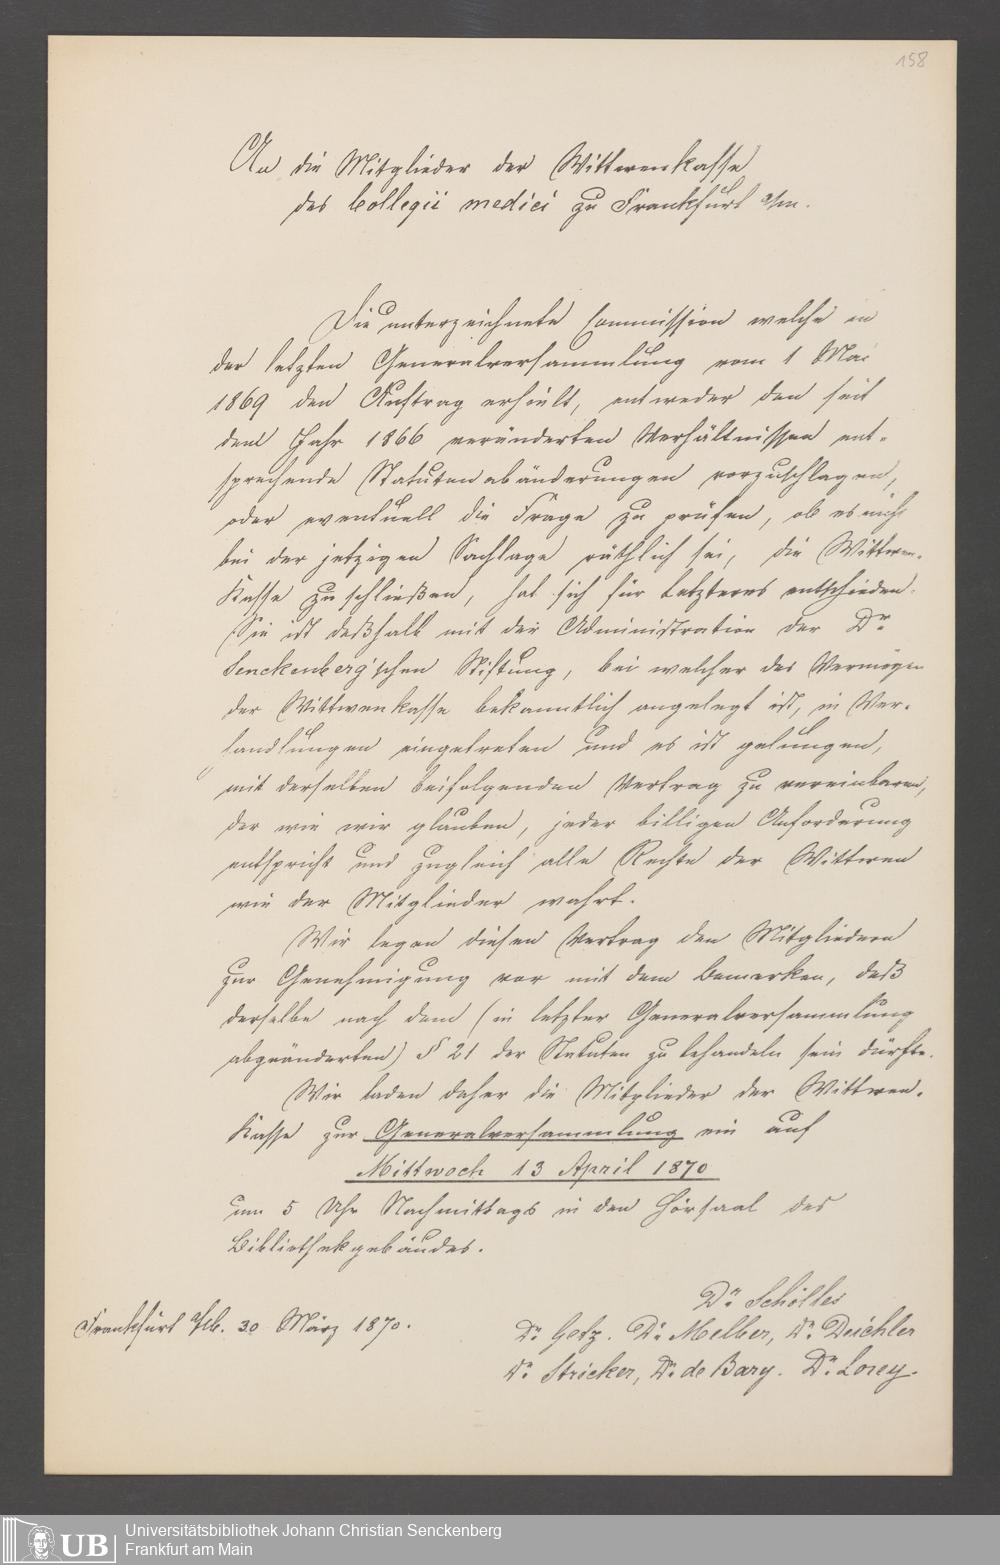 158
An die Mitglieder der Wittwenkasse
des Collegii medici zu Frankfurt a/m.
Die unterzeichnete Commission welche in
der letzten Generalversammlung vom 1 Mai
1869 den Auftrag erhielt, entweder den seit
dem Jahr 1866 veränderten Verhältnissen ent-
sprechende Statutenabänderungen vorzuschlagen,
oder eventuell die Frage zu prüfen, ob es nicht
bei der jetzigen Sachlage räthlich sei, die Wittwen-
Kasse zu schließen, hat sich für Letzteres entschieden.
Sie ist deßhalb mit der Administration der Dr
Senckenberg'schen Stiftung, bei welcher das Vermögen
der Wittwenkasse bekanntlich angelegt ist, in Ver-
handlungen eingetreten und es ist gelungen,
mit derselben beifolgenden Vertrag zu vereinbaren,
der wie wir glauben, jeder billigen Anforderung
entspricht und zugleich alle Rechte der Wittwen
wie der Mitglieder wahrt.
Wir legen diesen Vertrag den Mitgliedern
zur Genehmigung vor mit dem Bemerken, daß
derselbe nach dem (in letzter Generalversammlung
abgeänderten) § 21 der Statuten zu behandeln sein dürfte.
Wir laden daher die Mitglieder der Wittwen-
Kasse zur Generalversammlung ein auf
Mittwoch 13 April 1870
um 5 Uhr Nachmittags in den Hörsaal des
Bibliothekgebäudes.
Frankfurt a/M. 30 März 1870.
Dr Schölles
Dr Getz. Dr Melber, Dr Deichler
Dr Stricker, Dr de Bary. Dr Lorey.
UB
Universitätsbibliothek Johann Christian Senckenberg
Frankfurt am Main